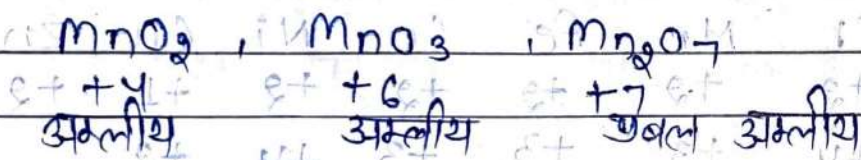 MnO₂ , MnO₃ , Mn₂O₇
+4 +6 +7
अम्लीय अम्लीय प्रबल अम्लीय